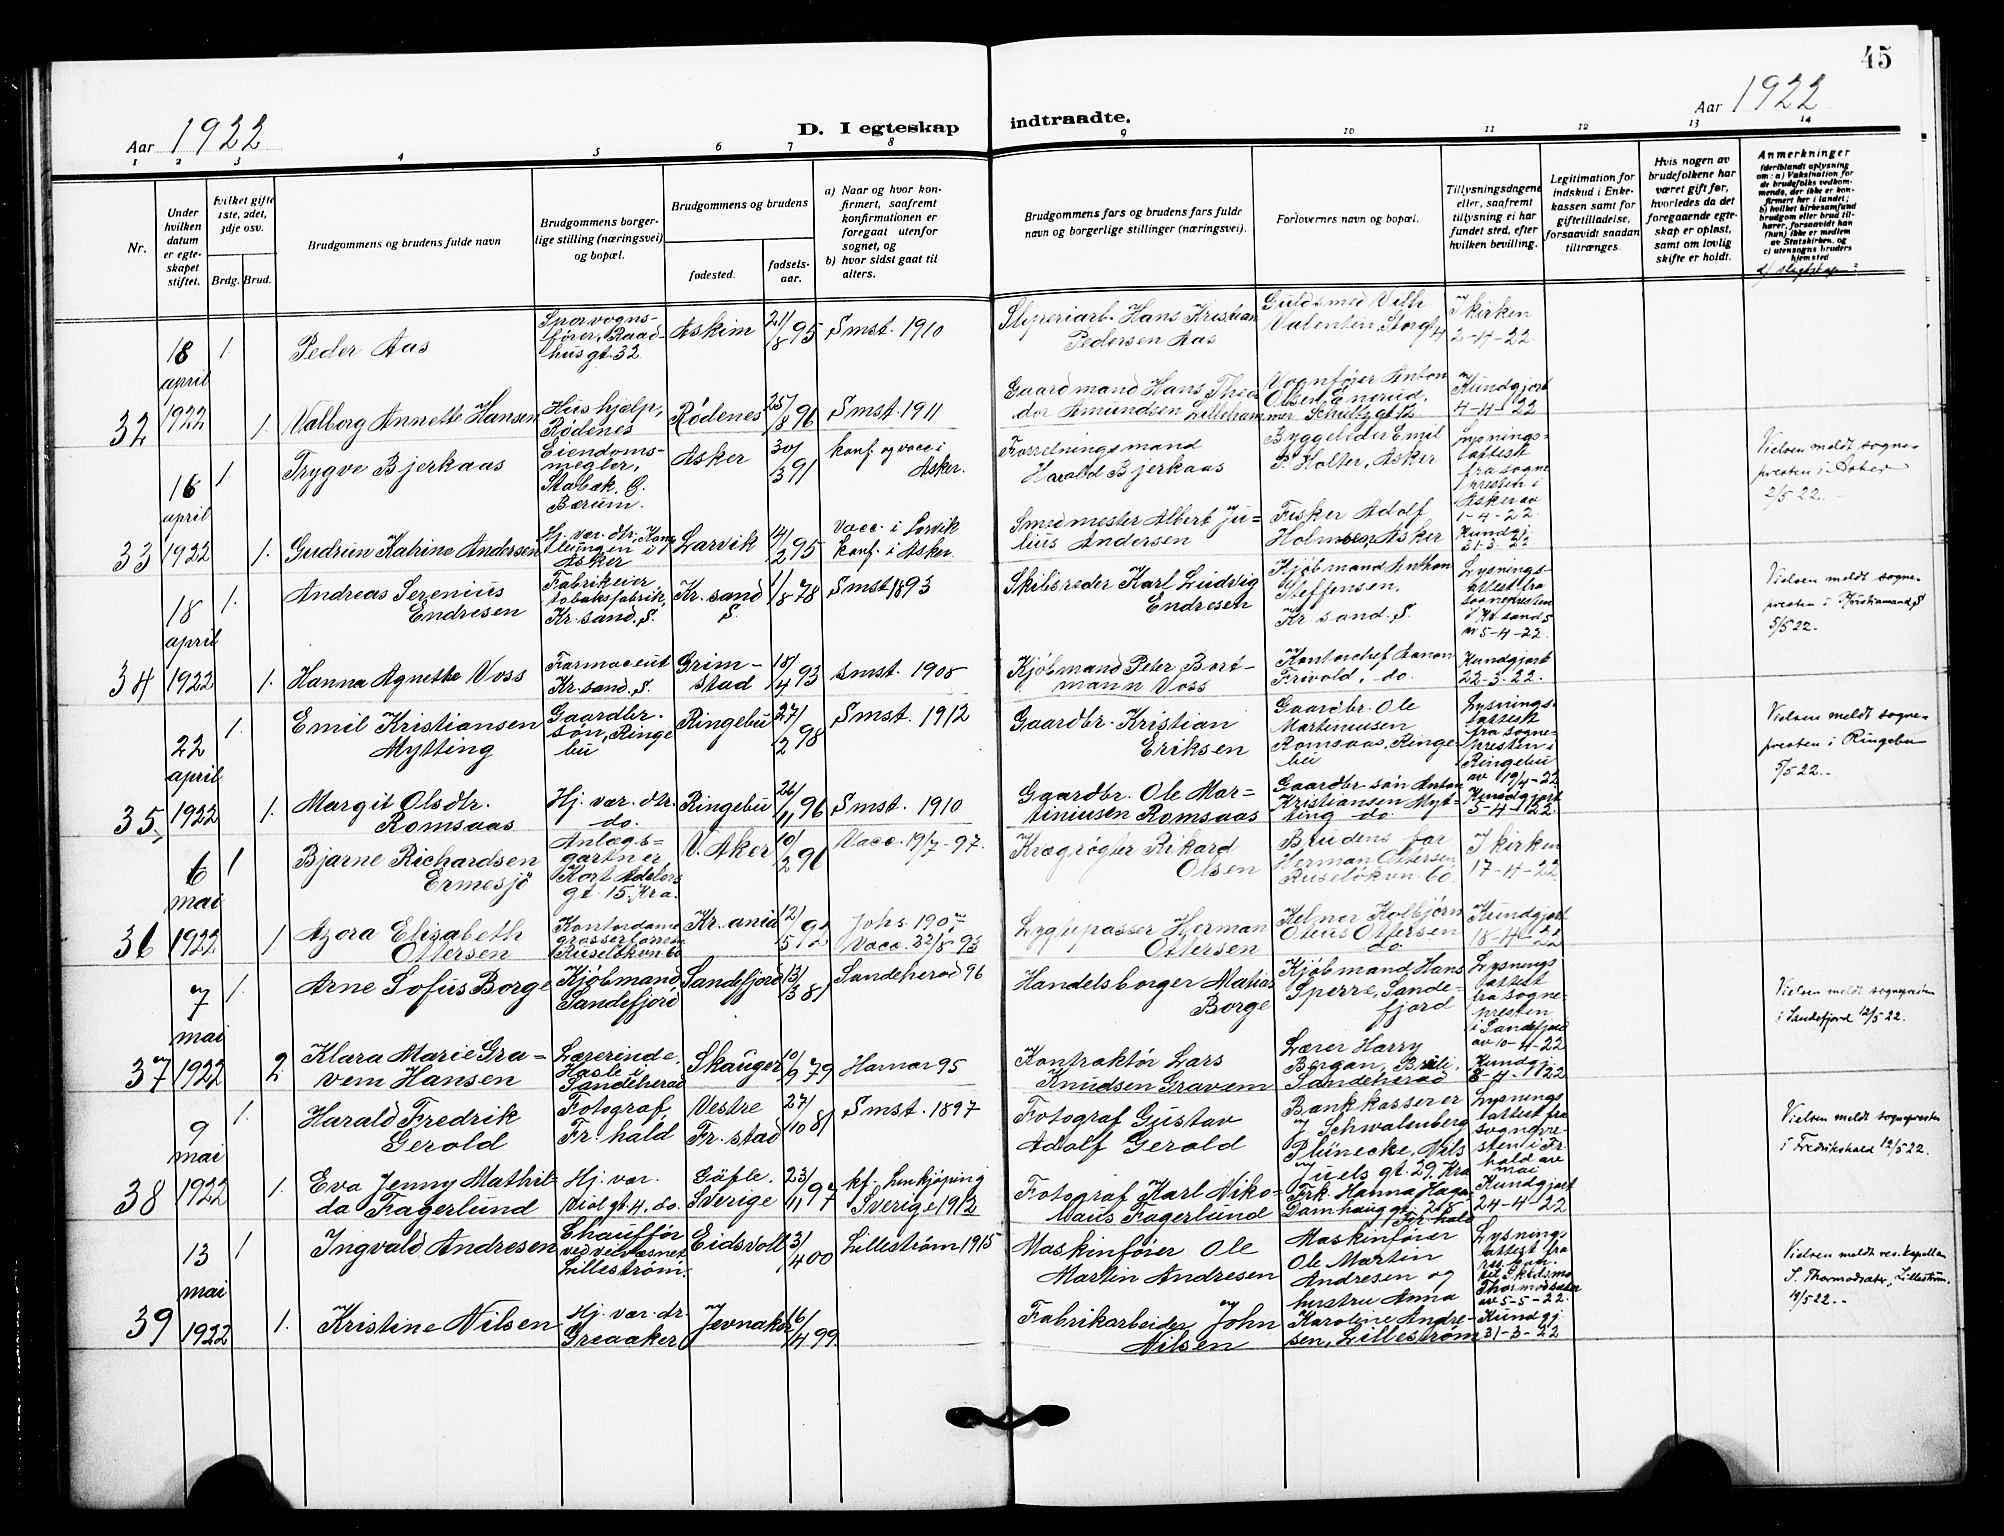 45
Aar 1922
D. I egteskap indtraadte.
Aar 1922
1 2 3 4 5 6 7 8 9 10 11 12 13 14
Nr.
Under hvilken datum er egteskapet stiftet.
Hvilket gifte 1ste, 2det, 3dje osv.
Brdg. Brud.
Brudgommens og brudens fulde navn
Brudgommens borgerlige stilling (næringsvei) og bopæl.
Brudgommens og brudens
fødested.
fødselsaar.
a) Naar og hvor konfirmert, saafremt konfirmationen er foregaat utenfor sognet, og
b) hvor sidst gaat til alters.
Brudgommens fars og brudens fars fulde navn og borgerlige stillinger (næringsvei).
Forlovernes navn og bopæl.
Tillysningsdagene eller, saafremt tillysning ei har fundet sted, efter hvilken bevilling.
Legitimation for indskud i Enkekassen samt for giftetilladelse, forsaavidt saadan tiltrænges.
Hvis nogen av brudefolkene har været gift før, hvorledes da det foregaaende egteskap er opløst, samt om lovlig skifte er holdt.
Anmerkninger (deriblandt oplysning om: a) Vaksination for de brudefolks vedkommende, der ikke er konfirmert her i landet; b) hvilket kirkesamfund brudgom eller brud tilhører, forsaavidt han (hun) ikke er medlem av Statskirken, og c) utensogns bruders hjemsted
32
18 april 1922
1.
Peder Aas
Sporvognsfører, Raadhusgt. 32
Askim
21/8 95
Smst. 1910
Sliperiarb. Hans Kristian Pedersen Aas
Guldsmed Vilh. Valentin, Storgt 4
I kirken 2-4-22
1.
Valborg Annette Hansen
Hushjælp, Rødenes
Rødenes
25/8 96
Smst. 1911
Gaardmand Hans Theodor Amundsen Lillehammer
Vognfører Anton Olsen Enerud, Schultzgt 12
Kundgjort 4-4-22
33
16 april 1922
1.
Trygve Bjerkaas
Eiendomsmegler, Stabæk, G. Bærum.
Asker
30/3 91
konf. og vacc i Asker.
Forretningsmand Harald Bjerkaas
Byggeleder Emil P. Holter, Asker
Lysningsattest fra sognepresten i Asker av 1-4-22
Vielsen meldt sognepresten i Asker 2/5 22.
1.
Gudrun Katrine Andersen
Hj. vær. dtr, Asker
Larvik
14/2 95
Vacc. i Larvik konf. i Asker.
Smedmester Albert Julius Andersen
Fisker Adolf Holmsen, Asker
Kundgj 31-3-22
34
18 april 1922
1.
Andreas Serenius Endresen
Fabrikeier tobaksfabrik, Kr.sand. S.
Kr. sand S.
1/8 78
Smst 1893
Skibsreder Karl Ludvig Endresen
Kjøbmand Anthon Steffensen, Kr. sand. S.
Lysningsattest fra sognepresten i Kr sand S av 5-4-22.
Vielsen meldt sognepresten i Kristiansand S 5/5 22.
1.
Hanna Agnethe Voss
Farmaceut Kr.sand. S.
Grimstad
18/4 93
smst. 1908
Kjøbmand Peter Bortmann Voss
Kontorchef Aanon Frivold, do.
Kundgjort 22-3-22.
35
22 april 1922
1.
Emil Kristiansen Mytting
Gaardbr. søn, Ringebu
Ringebu
27/2 98
Smst. 1912
Gaardbr. Kristian Eriksen
Gaardbr. Ole Martiniusen Romsaas, Ringebu
Lysningsattest fra sognepresten i Ringebu av 19/4-22
Vielsen meldt sognepresten i Ringebu 5/5 22.
1.
Margit Olsdtr. Romsaas
Hj. vær. dtr. do.
Ringebu
26/11 96
Smst. 1910
Gaardbr. Ole Martiniusen Romsaas
Gaardbr søn Anton Kristiansen Mytting do.
Kundgjort 5-4-1922.
36
6 mai 1922
1
Bjarne Richardsen Ermesjø
Anlægsgartner, Kort Adelersgt. 15. Kra.
V. Aker
10/2 96
Vacc. 19/7-97.
Kragrøgter Rikard Olsen
Brudens far Herman Ottersen Ruseløkvn. 60.
I kirken 17-4-22
1
Azora Elisabeth Ottersen
Kontordame grosserforren Ruseløkvn. 60
Kr.ania
12/5 92
Johs. 1907 Vacc. 22/8-93
Lygtepasser Herman Ottersen
Kelner Kolbjørn Otius Ottersen do
Kundgjort 18-4-22
37
7 mai 1922
1.
Arne Sofus Borge
Kjøbmand, Sandefjord
Sandefjord
13/3 81
Sandeherad 96
Handelsborger Matias Borge
Kjøbmand Hans Sperre, Sandefjord
Lysningsattest fra sognepresten i Sandefjord av 10-4-22
Vielsen meldt sognepresten i Sandefjord 12/5 22.
2
Klara Marie Gravem Hansen
Lærerinde, Hasle i Sandeherad
Skauger
10/9 79
Hamar 95
Kontraktør Lars Knudsen Gravem
Lærer Harry Borgan, Sandeherad
Kundgj. 8-4-1922
38
9 mai 1922
1.
Harald Fredrik Gerold
Fotograf, Fr. hald
Vestre Fr. stad
27/10 81
Smst. 1897
Fotograf Gustav Adolf Gerold
Bankkasserer J. Schwalenberg Plünecke, Nils Juels gt. 29. Kra
Lysningsattest fra sognepresten i Fr. hald av mai
Vielsen meldt sognepresten i Fredrikshald 12/5 22.
1.
Eva Jenny Mathilda Fagerlund
Hj. vær. Violgt. 4. do.
Gäfle. Sverige
23/11 97
kf. Linkjøping Sverige 1912
Fotograf Karl Nikolaus Fagerlund
Frk. Hanna Haga, Damhauggt. 218 Fr. hald
Kundgjort 24-4-22
39
13 mai 1922
1
Ingvald Andresen
Chauffør ved veivæsnet Lillestrøm.
Eidsvoll
3/4 00
Lillestrøm 1915
Maskinfører Ole Martin Andresen
Maskinfører Ole Martin Andresen og hustru Anna Karoline Andresen, Lillestrøm
Lysningsattest fra res. kap. til Skedsmo Thormodsæter av 5-5-22.
Vielsen meldt res. kapellan S. Thormodsæter, Lillestrøm.
1.
Kristine Nilsen
Hj. vær. dr. Greaaker
Jevnaker
16/4 99
Fabrikarbeider John Nilsen
Kundgj. 31-3-22